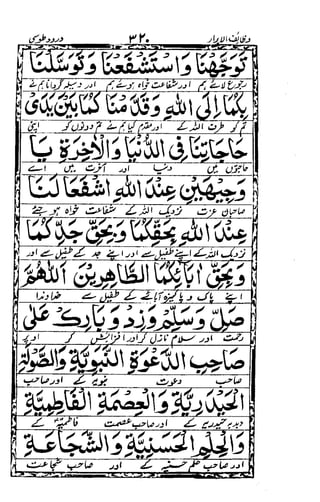 وظائف الابرار ۳۲۰ درود طوسی
تَوَجَّهْنَا وَاسْتَشْفَعْنَا وَتَوَسَّلْنَا
رجوع لائے ہم اور شفاعت خواہ ہوئے ہم اور وسیلہ گردانا ہم نے
بِكُمَا اِلَى اللهِ وَقَدَّمْنَاكُمَا بَيْنَ يَدَيْ
تم کو طرف اللہ کے اور مقدم کیا ہم نے تم دونوں کو اپنی
حَاجَاتِنَا فِى الدُّنْيَا وَالْاٰخِرَةِ يَا
حاجتوں میں دنیا اور آخرت میں اے
وَجِيْهَيْنِ عِنْدَ اللهِ اِشْفَعَا لَنَا
صاحبان عزت نزدیک اللہ کے شفاعت خواہ ہو جئے
عِنْدَ اللهِ بِحَقِّكُمَا وَبِحَقِّ جَدِّكُمَا
نزدیک اللہ کے اپنے طفیل سے اور اپنے جد کے طفیل سے اور
وَبِحَقِّ اٰبَائِكُمَا الطَّاهِرِيْنَ اَللّٰهُمَّ
اپنے پاک و پاکیزہ آبا کے طفیل سے خداوندا
صَلِّ وَسَلِّمْ وَزِدْ وَبَارِكْ عَلٰى
رحمت اور سلام نازل کر اور افزائش کر اوپر
صَاحِبِ الدَّعْوَةِ النَّبَوِيَّةِ وَالصَّوْلَةِ
صاحب دعوت نبویہ کے اور صاحب
الْحَيْدَرِيَّةِ وَالْعِصْمَةِ الْفَاطِمِيَّةِ
دبدبہ حیدریہ کے اور صاحب عصمت فاطمیہ کے
وَالْحِلْمِ الْحَسَنِيَّةِ وَالشُّجَاعَةِ
اور صاحب حلم حسنیہ کے اور صاحب شجاعت